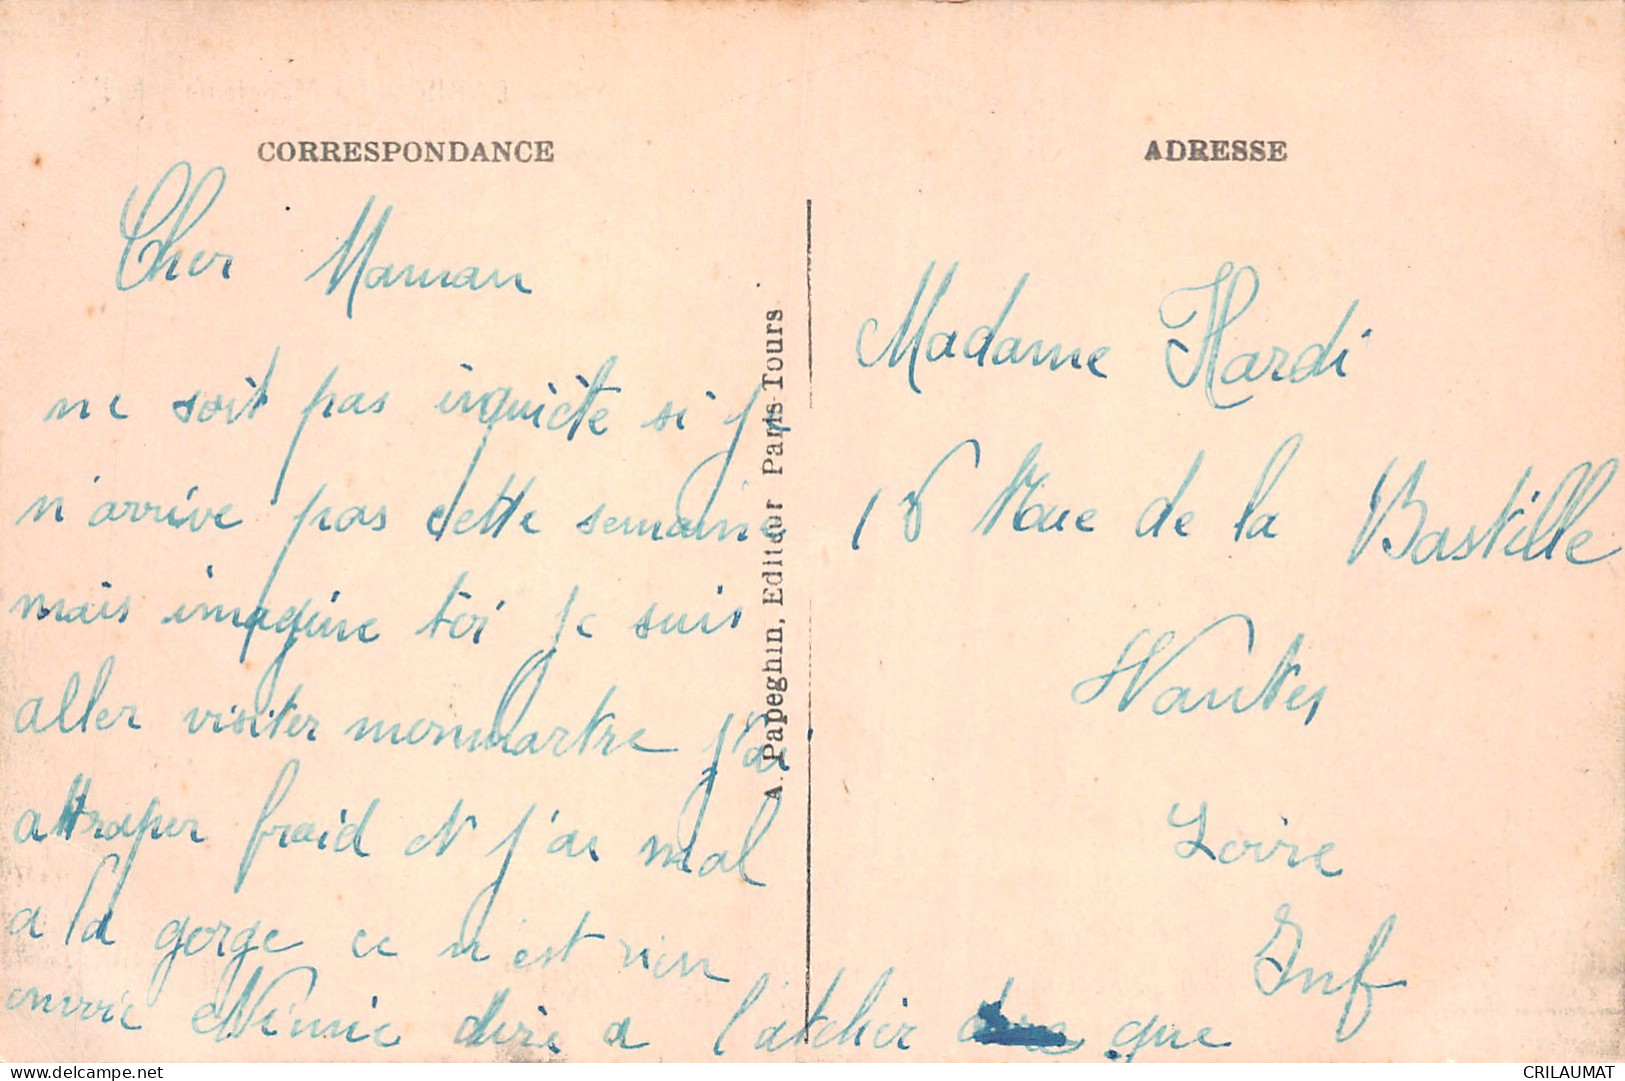 CORRESPONDANCE
Cher Maman
ne soit pas inquiète si je
n'arrive pas cette semaine
mais imagine toi je suis
aller visiter monmartre j'ai
attraper fraid et j'ai mal
a la gorge ce n'est rien
dire a l'atelier que
A. Papeghin, Editeur Paris-Tours
ADRESSE
Madame Hardi
18 Rue de la Bastille
Nantes
Loire
Inf
CRILAUMAT